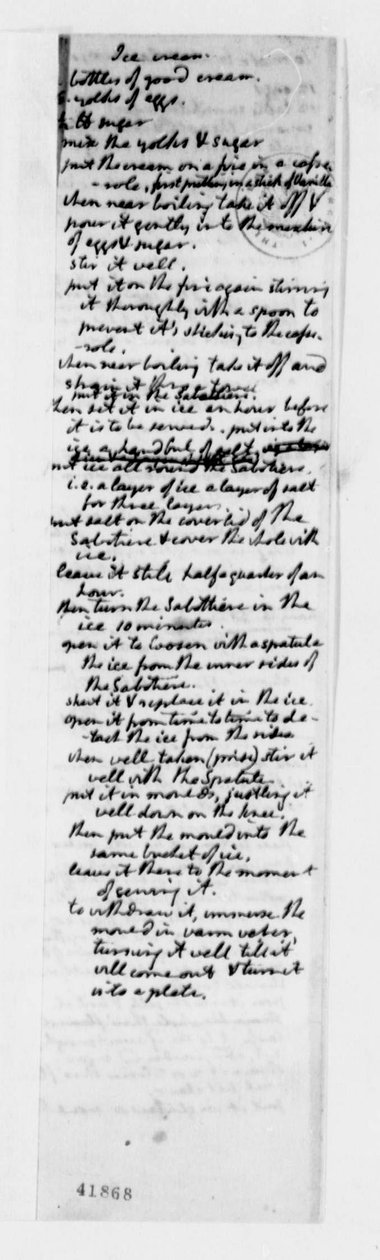 Ice cream.
bottles of good cream.
yolks of eggs.
lb sugar
mix the yolks & sugar
put the cream on a fire in a casse-
-role, first putting in a stick of Vanilla
when near boiling take it off &
pour it gently into the mixture
of eggs & sugar.
stir it well.
put it on the fire again stirring
it thoroughly with a spoon to
prevent it's sticking to the casse-
-role.
when near boiling take it off and
strain it thro' a towel.
put it in the Sabottiere.
then set it in ice an hour before
it is to be served. put into the
ice a handful of salt.
put ice all round the Sabotiere.
i.e. a layer of ice a layer of salt
for three layers.
put salt on the coverlid of the
Sabotiere & cover the whole with
ice.
leave it still half a quarter of an
hour.
then turn the Sabottiere in the
ice 10 minutes.
open it to loosen with a spatula
the ice from the inner sides of
the Sabotiere.
shut it & replace it in the ice.
open it from time to time to de-
-tach the ice from the sides
when well taken (prise) stir it
well with the Spatula.
put it in moulds, justling it
well down on the knee.
then put the mould into the
same bucket of ice.
leave it there to the moment
of serving it.
to withdraw it, immerse the
mould in warm water,
turning it well till it
will come out & turn it
into a plate.
41868